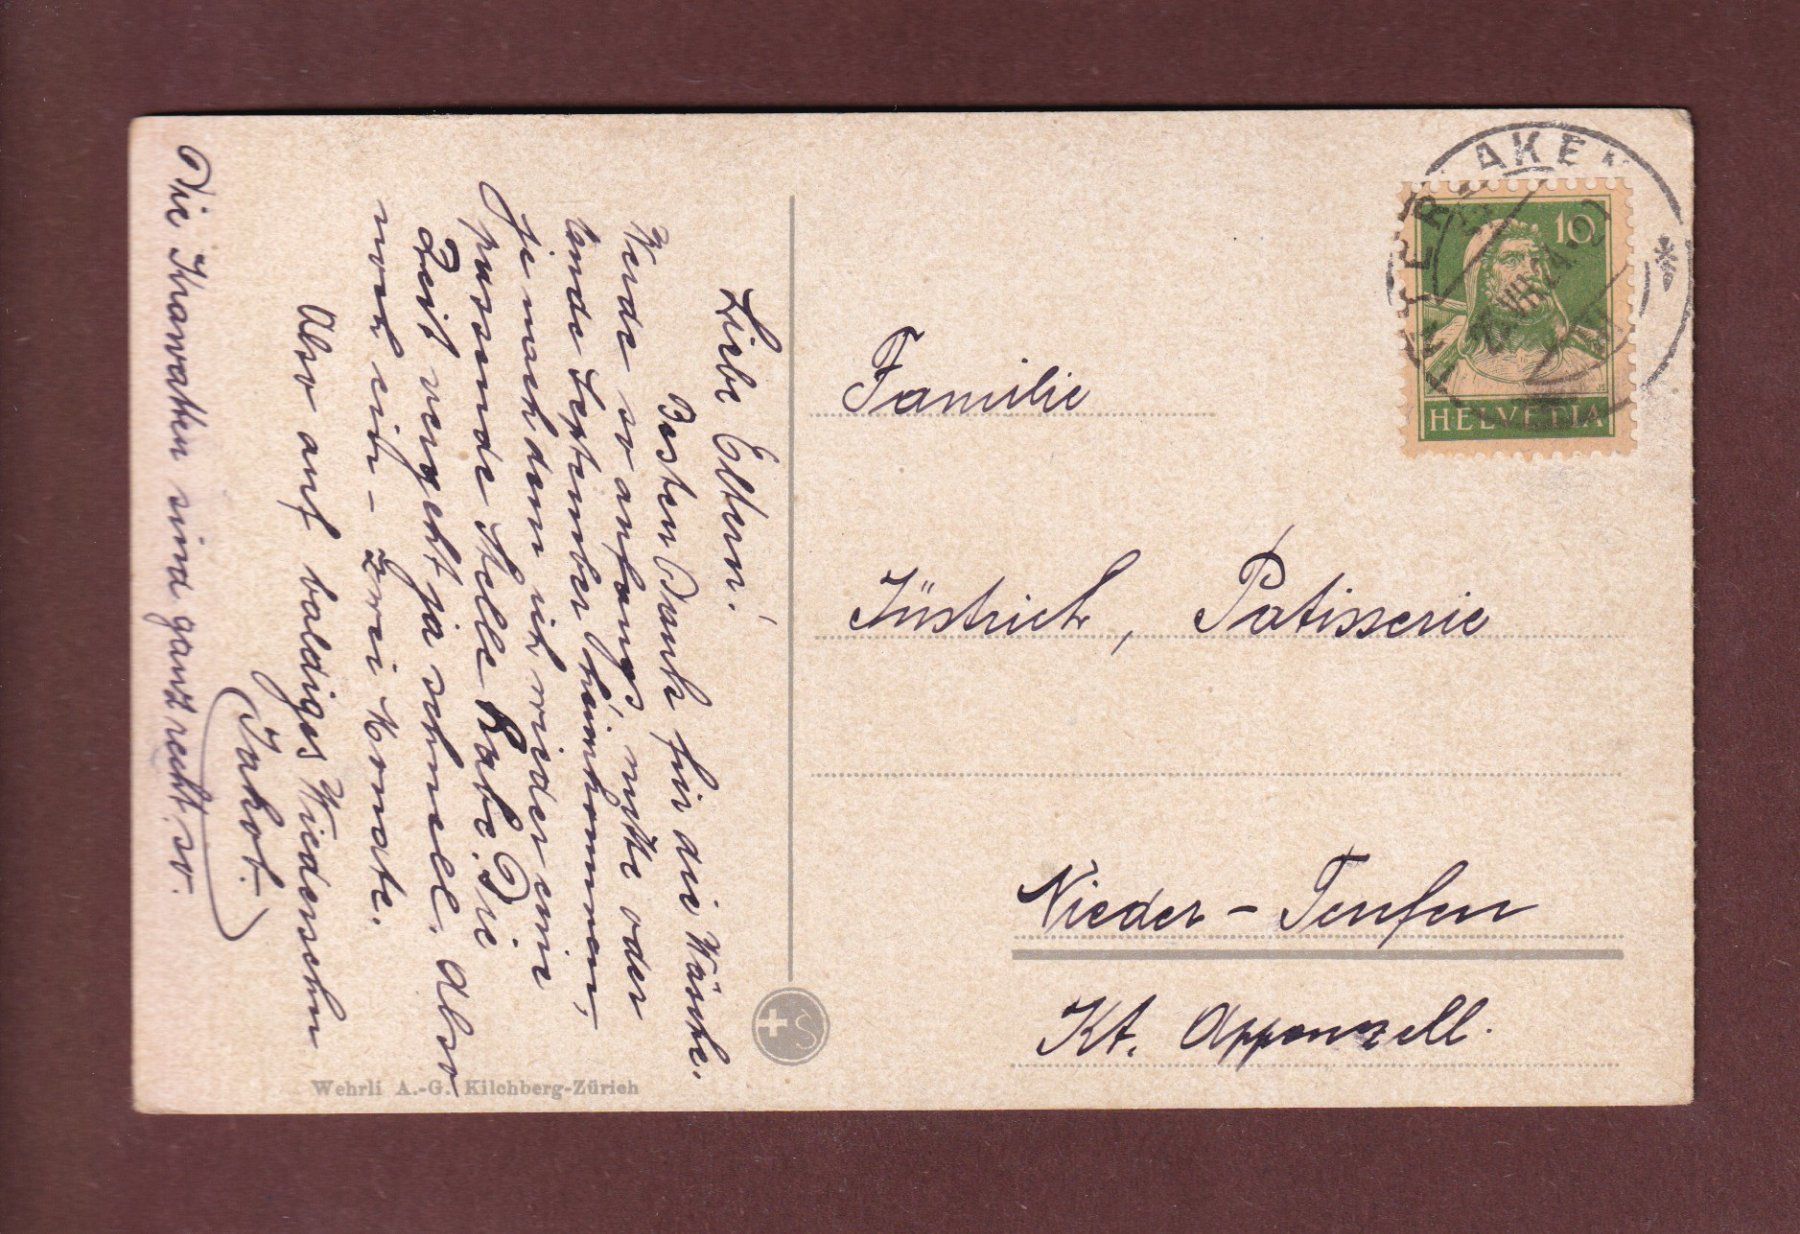 Liebe Eltern!
Besten Dank für die Wäsche.
Werde so anfangs, mitte oder
Ende September heimkommen,
je nach dem ich wieder eine
passende Stelle habe. Die
Zeit vergeht ja schnell. Also
noch ein - zwei Monate.
Also auf baldiges Wiedersehn
Jakob.
Die Krawatten sind ganz recht so.
Familie
Jüstrich, Patisserie
Nieder - Teufen
Kt. Appenzell.
INTERLAKEN
10
HELVETIA
Wehrli A.-G. Kilchberg-Zürich
S